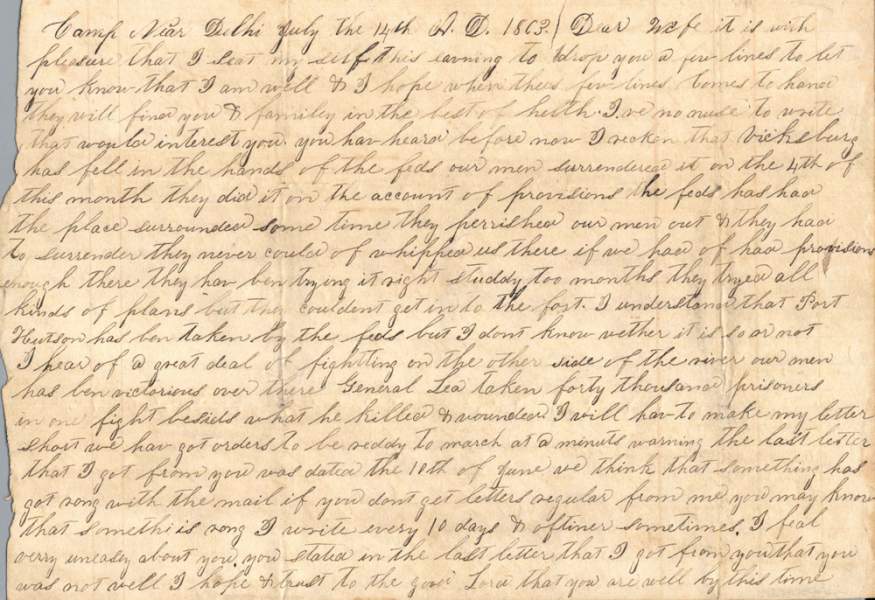 Camp Near Delhi July the 14th A. D. 1863. Dear Wife it is with
pleasure that I Seat my self this eavning to drop you a few lines to let
you know that I am well & I hope when thees few lines Comes to hand
they will find you & familey in the best of helth. I ve no nuse to write
that would interest you. you hav heard before now I recken that Vicksburg
has fell in the hands of the feds our men surrendered it on the 4th of
this month they did it on the account of provisions the feds has had
the place surrounded some time they perrished our men out & they had
to surrender they never could of whipped us there if we had of had provisions
enough there they hav ben trying it right studdy too months they tryed all
kinds of plans but they couldent get in to the fort. I understand that Port
Hutson has ben taken by the feds but I dont know vether it is so or not
I hear of a great deal of fightting on the other side of the river our men
has ben victorious over there General Lea taken forty thousand prisoners
in one fight besids what he killed & wounded I will hav to make my letter
short we hav got orders to be reddy to march at a minuts warning the last letter
that I got from you was dated the 10th of June we think that something has
got rong with the mail if you dont get letters regular from me you may know
that somethi is rong I write every 10 days & oftiner sometimes. I feal
verry uneasy about you. you stated in the last letter that I got from you that you
was not well I hope & trust to the good Lord that you are well by this time